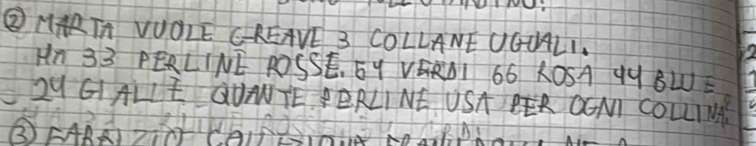 ② MARTA VUOLE CREAVE 3 COLLANE UGUALI.
HA 33 PERLINE ROSSE. 54 VERDI 66 ROSA 44 BLU E
24 GIALLE QUANTE PERLINE USA PER OGNI COLLINA?
③